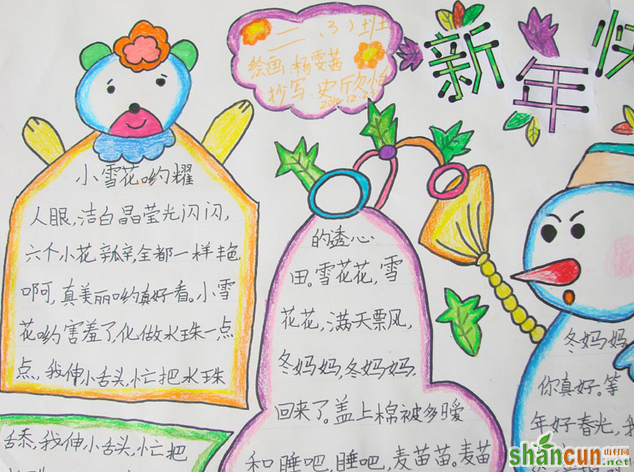 二、(3)班
绘画:杨雯茜
抄写:史欣怡
新年快
小雪花哟耀
人眼,洁白晶莹光闪闪,
六个小花瓣,全都一样艳
啊呵,真美丽哟真好看。小雪
花哟害羞了,化做水珠一点
点,我伸小舌头,忙把水珠
舌忝,我伸小舌头,忙把
的透心
田。雪花花,雪
花花,满天票风,
冬妈妈冬妈妈
回来了。盖上棉被多暧
和睡吧,睡吧,麦苗苗,麦苗
冬妈妈
你真好。等
年好春光,我
shancun.net
山村网